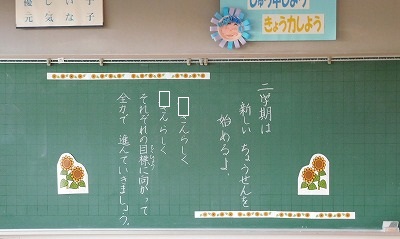 優しい子
元気な子
しゅう中しよう
きょう力しよう
二学期は
新しい ちょうせんを
始めるよ。
さんらしく
さんらしく
それぞれの目標に向かって
全力で 進んでいきましょう。